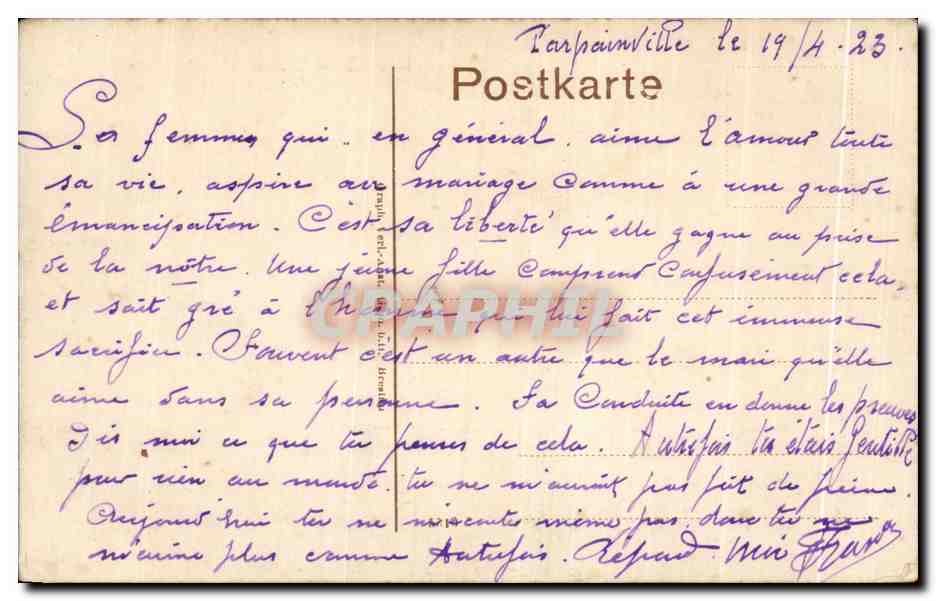 Parpainville le 19/4.23.
Postkarte
Les femmes qui.. en général, aime l'amour toute
sa vie, aspire au mariage comme à une grande
émancipation. C'est sa liberté qu'elle gagne au prise
de la nôtre. Une jeune fille comprend confusément cela,
et sait gré à l'homme qui lui fait cet immense
sacrifice. Souvent c'est un autre que le mari qu'elle
aime dans sa personne. Sa Conduite en donne les preuves
Dis moi ce que tu penses de cela. Autrefois tu étais Gentille
pour rien au monde. tu ne m'aurait pas fait de peine.
Aujourd'hui tu ne m'écoute même pas, donc tu ne
m'aime plus comme Autrefois. Répond moi
GRAPHIL